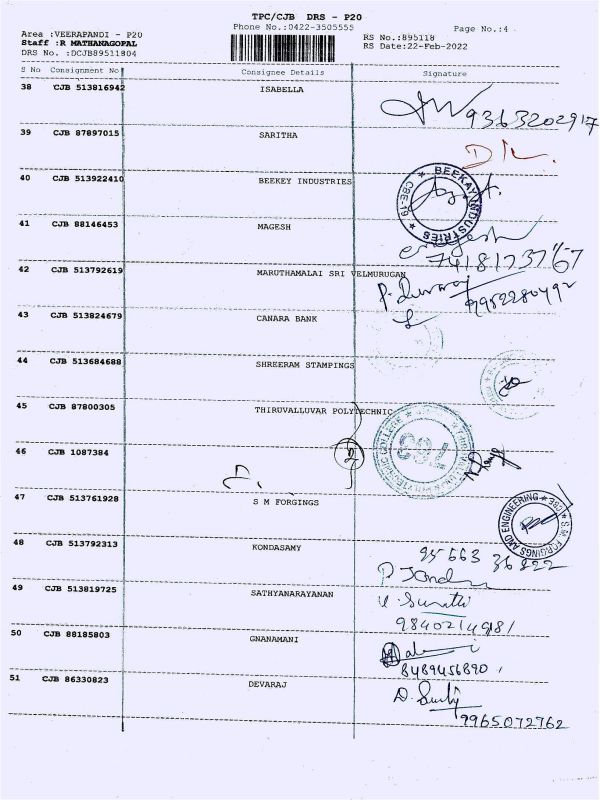 TPC/CJB DRS - P20
Phone No.:0422-3505555
Page No.:4
Area :VEERAPANDI - P20
RS No.:895118
Staff :R MATHANAGOPAL
RS Date:22-Feb-2022
DRS No. :DCJB89511804
S No Consignment No Consignee Details Signature
38 CJB 513816942 ISABELLA
9363202917
39 CJB 87897015 SARITHA
40 CJB 513922410 BEEKEY INDUSTRIES
BEEKAY INDUSTRIES CBE-29
41 CJB 88146453 MAGESH
42 CJB 513792619 MARUTHAMALAI SRI VELMURUGAN
9952280492
43 CJB 513824679 CANARA BANK
44 CJB 513684688 SHREERAM STAMPINGS
45 CJB 87800305 THIRUVALLUVAR POLYTECHNIC
46 CJB 1087384
2
47 CJB 513761928 S M FORGINGS
S.M. FORGINGS AND ENGINEERING
48 CJB 513792313 KONDASAMY
95663 36822
49 CJB 513819725 SATHYANARAYANAN
9840214981
50 CJB 88185803 GNANAMANI
8489456890
51 CJB 86330823 DEVARAJ
9965072762